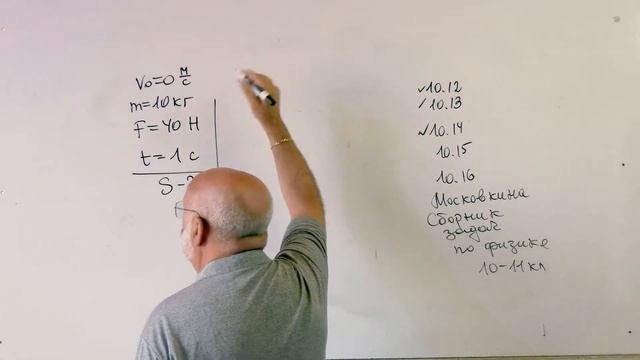 V₀=0 м/с
m=10кг
F=40 Н
t=1 с
S-?
✓10.12
/10.13
✓10.14
10.15
10.16
Московкина
Сборник
задач
по физике
10-11 кл